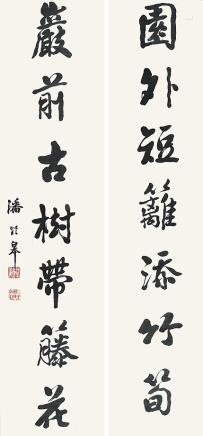 園外短籬添竹筍
巖前古樹帶藤花
潘齡皋